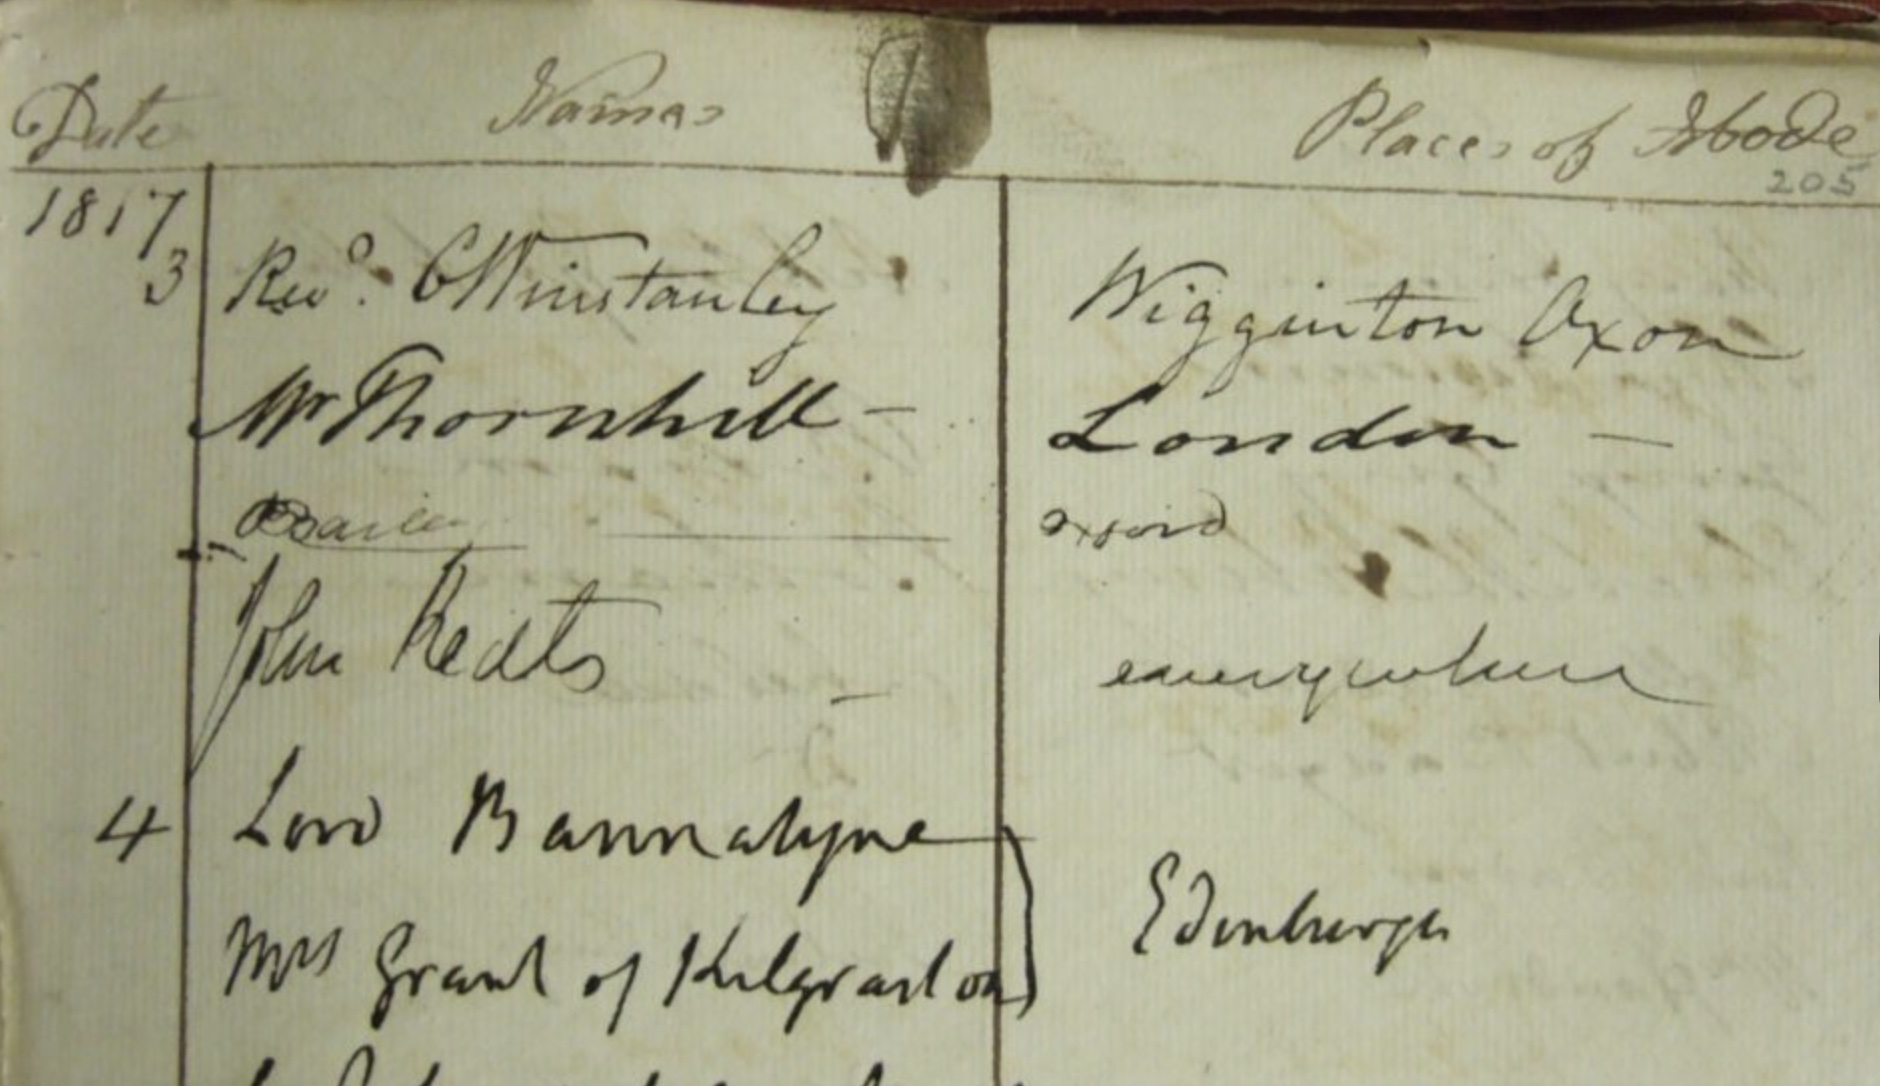 Date Names Places of Abode
205
1817
3 Revd. C Winstanley Wigginton Oxon
Mr Thornhill — London —
Bailey — oxford
John Keats — everywhere
4 Lord Bannatyne
Mrs Grant of Kilgraston Edinburgh